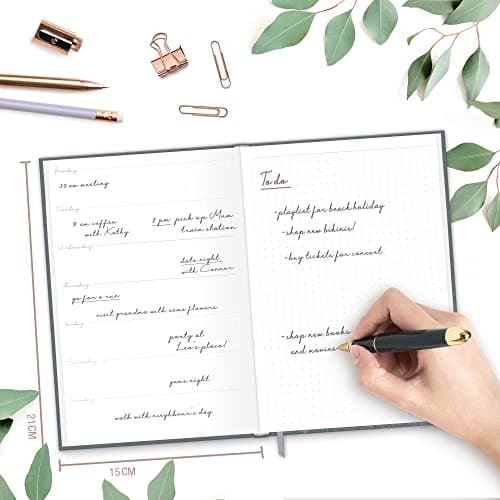 Monday
am meeting
Tuesday
am coffee
with Kathy
7 pm pick up Mum
train station
Wednesday
date night
with Connor
Thursday
go for a run
visit grandma with some flowers
party at
Lea's place!
Saturday
game night
Sunday
walk with neighbour's dog
To do
-playlist for beach holiday
-shop new bikinis!
-buy tickets for concert
-shop new books
and movies
21CM
15CM